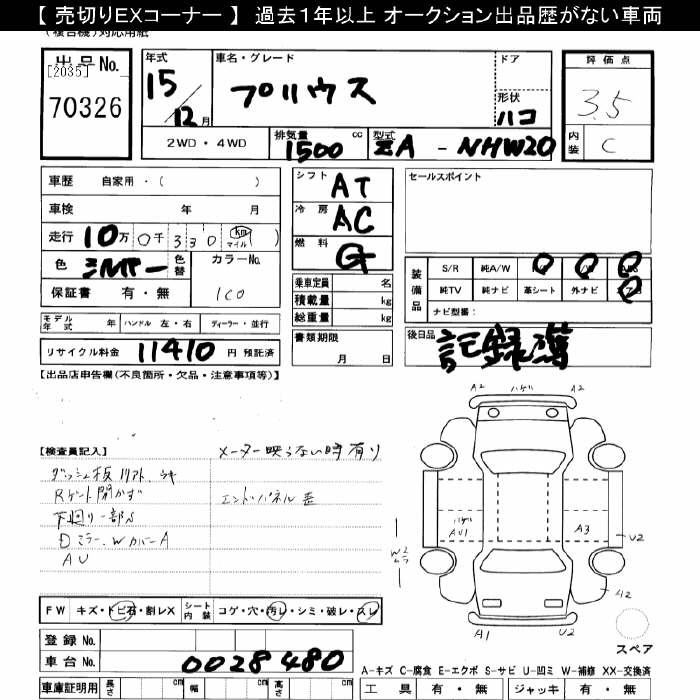 【 売切りEXコーナー 】 過去1年以上 オークション出品歴がない車両
(複合機)対応用紙
出品No.
[2035]
70326
年式
15/12月
車名・グレード
プリウス
ドア
形状
ハコ
評価点
3.5
内装
C
2WD・4WD
排気量
1500 cc
型式
ZA - NHW20
車歴 自家用・( )
車検 年 月
走行 10万 0千 330 km マイル ( )
色 シルバー 色替 カラーNo.
1C0
保証書 有・無
シフト AT
冷房 AC
燃料 G
乗車定員 名
積載量 kg
総重量 kg
書類期限
月 日
セールスポイント
装備品
S/R 純A/W
純TV 純ナビ 革シート 外ナビ
ナビ型番:
後日品 記録簿
モデル年式 年 ハンドル 左・右 ディーラー・並行
リサイクル料金 11410 円 預託済
【出品店申告欄(不良箇所・欠品・注意事項等)】
【検査員記入】
メーター映らない時有り
ダッシュ板リフト、キ
Rゲート開かず
エンドパネル歪
下回り一部S
Dミラー、WカバーA
AU
A2 ハゲ A2
ハゲ
AU1
A3
U2
W2
ムラ
A2
A1
U2
スペア
FW キズ・トビ石・割レX シート内装 コゲ・穴・汚レ・シミ・破レ・スレ
登録 No.
車台 No. 0028480
車庫証明用 長さ cm 幅 cm 高さ cm
A-キズ C-腐食 E-エクボ S-サビ U-凹ミ W-補修 XX-交換済
工具 有・無 ジャッキ 有・無